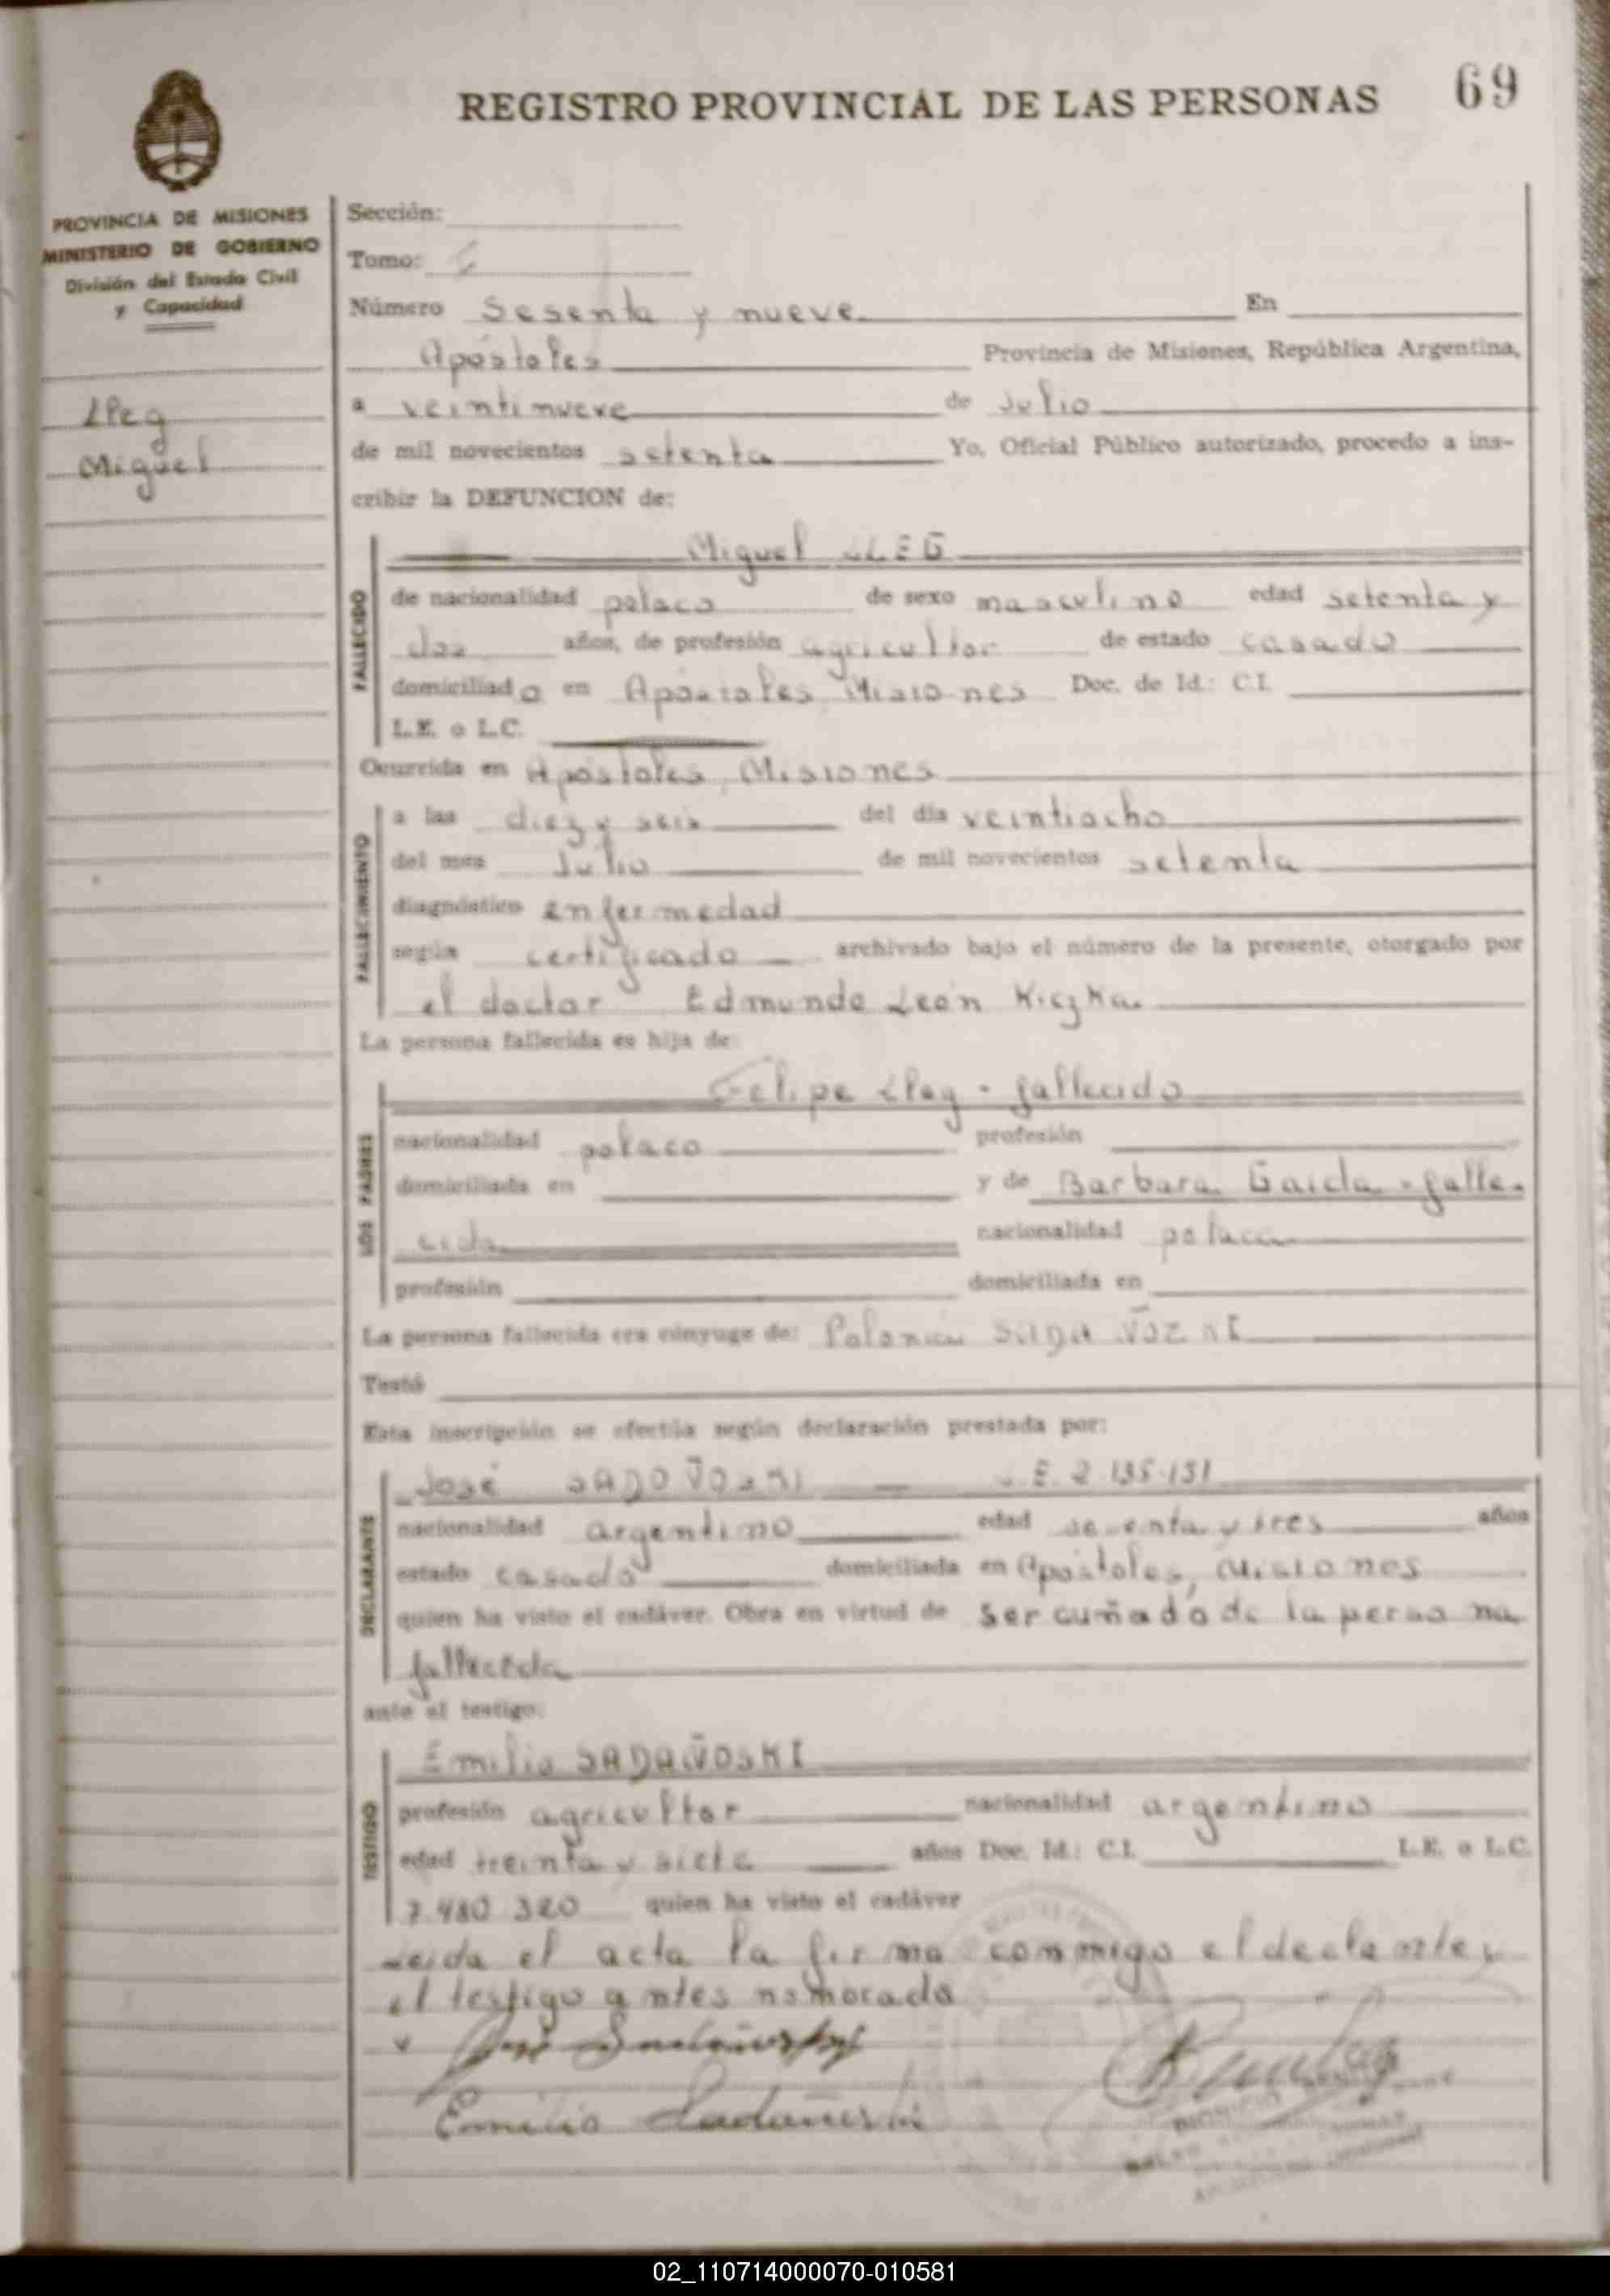 REGISTRO PROVINCIAL DE LAS PERSONAS
69
PROVINCIA DE MISIONES
MINISTERIO DE GOBIERNO
División del Estado Civil
y Capacidad
Lleg
Miguel
Sección:
Tomo:
Número Sesenta y nueve En
Apóstoles Provincia de Misiones, República Argentina,
a veintinueve de Julio
de mil novecientos setenta Yo, Oficial Público autorizado, procedo a ins-
cribir la DEFUNCION de:
Miguel LLEG
FALLECIDO
de nacionalidad polaco de sexo masculino edad setenta y
dos años, de profesión agricultor de estado casado
domiciliado en Apóstoles, Misiones Doc. de Id.: C.I.
L.E. o L.C.
Ocurrida en Apóstoles, Misiones
FALLECIMIENTO
a las diez y seis del día veintiocho
del mes Julio de mil novecientos setenta
diagnóstico enfermedad
según certificado archivado bajo el número de la presente, otorgado por
el doctor Edmundo León Kiczka
La persona fallecida es hija de:
Felipe Lleg - fallecido
LOS PADRES
nacionalidad polaco profesión
domiciliada en y de Barbara Gaida - falle-
cida nacionalidad polaca
profesión domiciliada en
La persona fallecida era cónyuge de: Polonia
Testó
Esta inscripción se efectúa según declaración prestada por:
José L.E. 2.135.131
DECLARANTE
nacionalidad argentino edad y tres años
estado casado domiciliada en Apóstoles, Misiones
quien ha visto el cadáver. Obra en virtud de ser cuñado de la persona
fallecida
ante el testigo:
Emilio SADAÑOSKI
TESTIGO
profesión agricultor nacionalidad argentino
edad treinta y siete años Doc. Id.: C.I. L.E. o L.C.
7.480.320 quien ha visto el cadáver
Leida el acta la firma conmigo el declante y
el testigo antes nomorado
José
Emilio Sadañoski
02_110714000070-010581